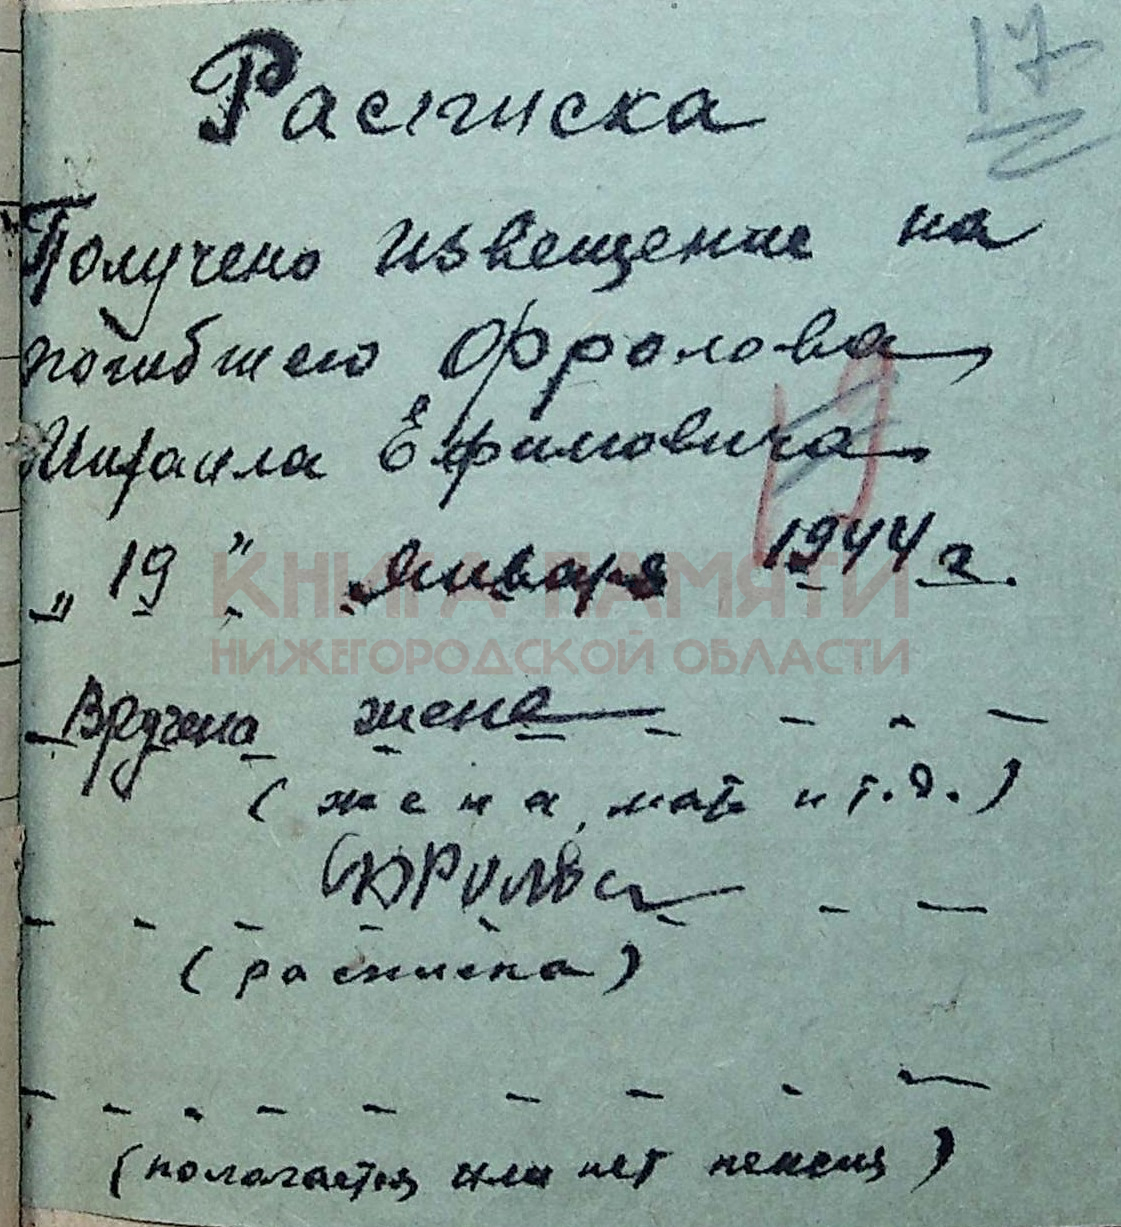 17
Расписка
Получено извещение на
погибшего Фролова
Михаила Ефимовича
19
„ 19 " Января 1944 г.
КНИГА ПАМЯТИ
НИЖЕГОРОДСКОЙ ОБЛАСТИ
Вручена жене
(жена, мать и т.д.)
(расписка)
(полагается или нет пенсия)